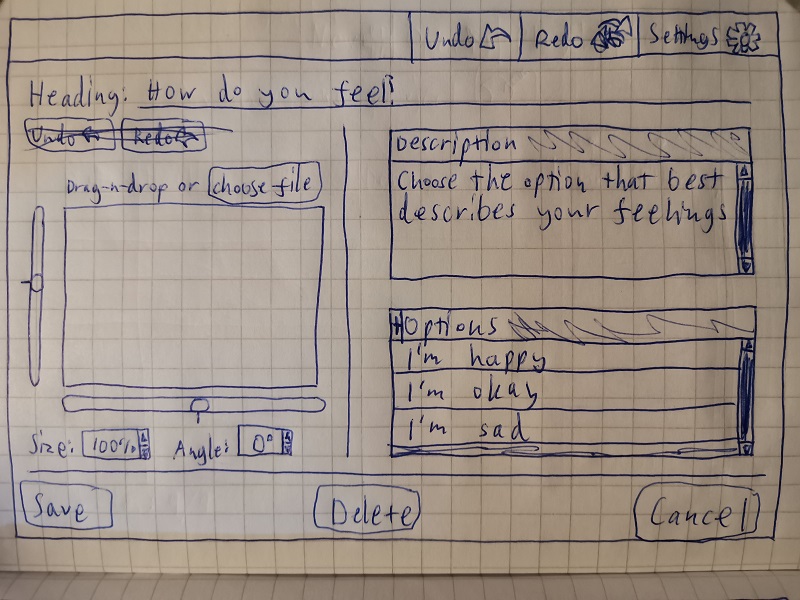 Undo Redo Settings
Heading: How do you feel?
Undo Redo
Drag-n-drop or choose file
Description
Choose the option that best
describes your feelings
Options
I'm happy
I'm okay
I'm sad
Size: 100% Angle: 0°
Save Delete Cancel